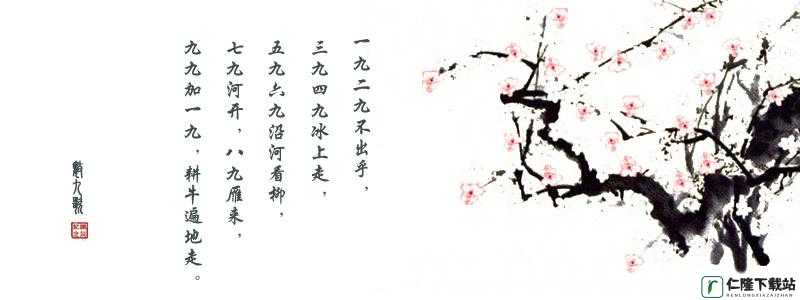 一九二九不出乎，
三九四九冰上走，
五九六九沿河看柳，
七九河开，八九雁来，
九九加一九，耕牛遍地走。
数九歌
仁隆下载站
RENLONGXIAZAIZHAN